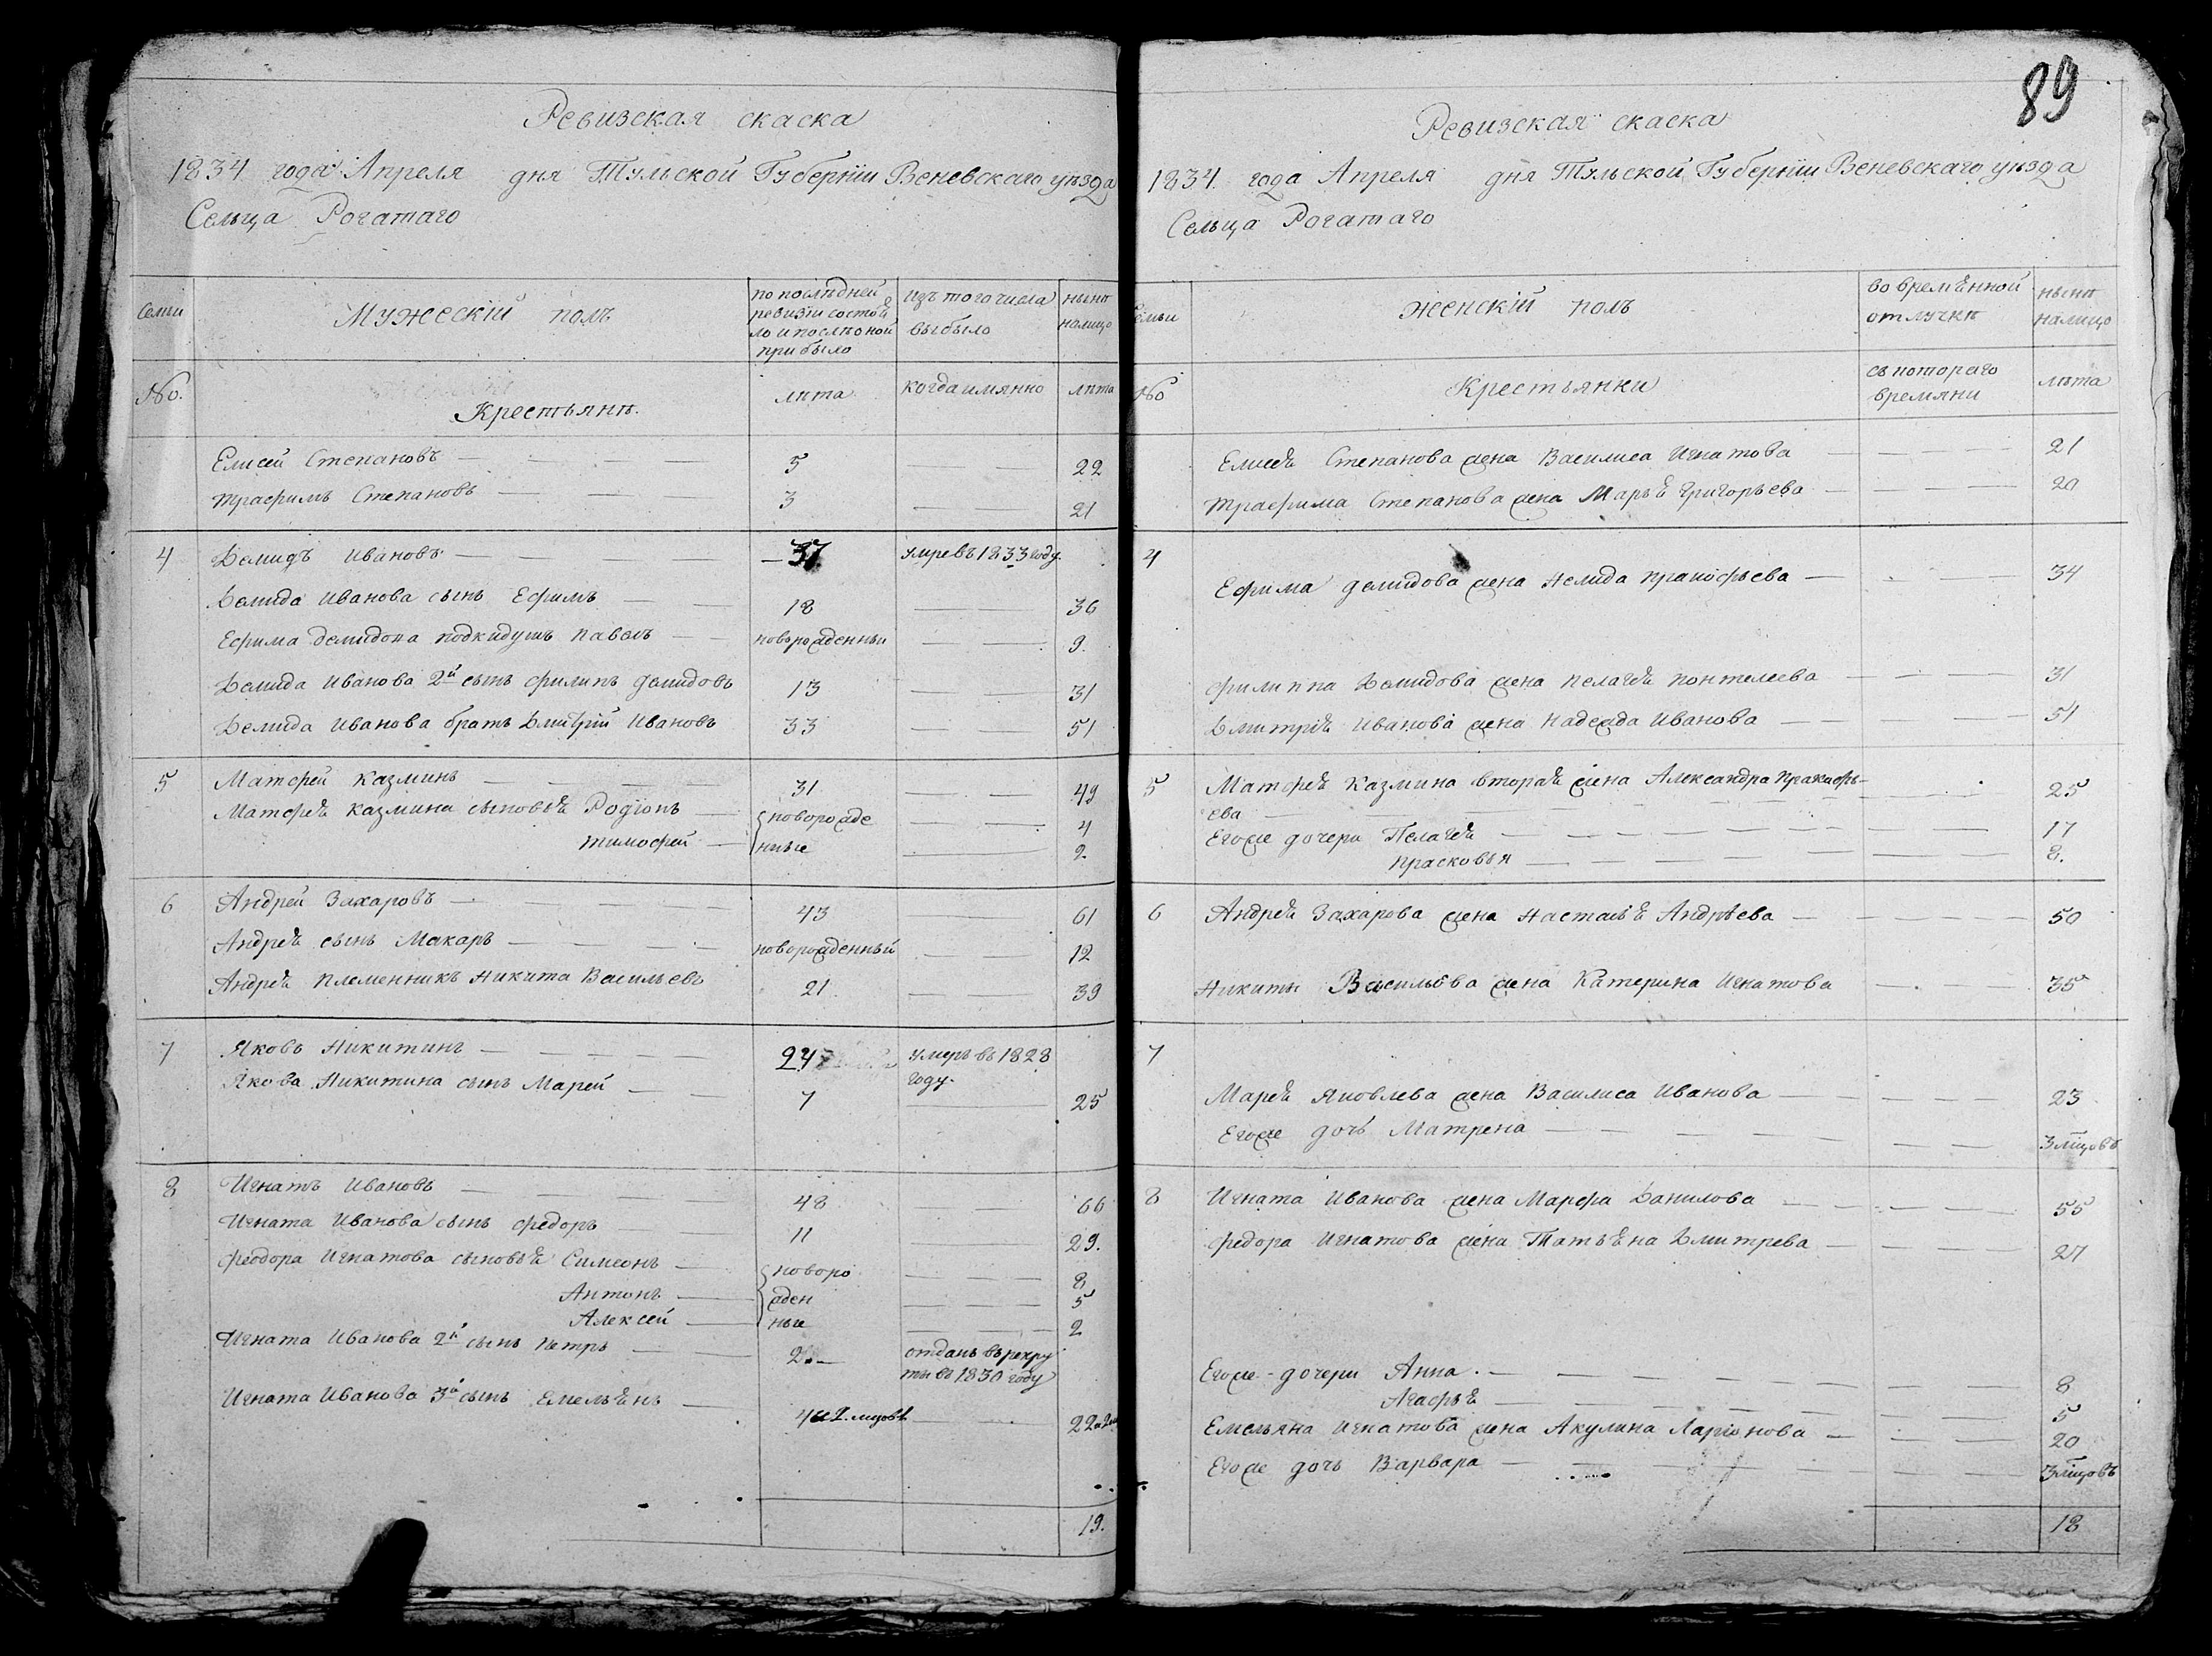 Ревизская скаска
1834 года Апреля дня Тульской Губернïи Веневскаго уѣзда
Сельца Рогатаго
Семьи
Мужескïй полъ
по послѣдней ревизïи состояло и послѣ оной прибыло
изъ того числа выбыло
нынѣ налицо
No.
Крестьянѣ.
лѣта
когда имянно
лѣта
Елисей Степановъ 5 22
Трафимъ Степановъ 3 21
4 Демидъ Ивановъ 37 умре въ 1833 году.
Демида Иванова сынъ Ефимъ 18 36
Ефима демидова подкидушъ павелъ новорожденный 9.
Демида Иванова 2й сынъ филипъ демидовъ 13 31
Демида Иванова братъ Дмитрïй Ивановъ 33 51
5 Матфей Казминъ 31 49
Матфея Казмина сыновья Родïонъ { новорожде 4
Тимофей нные 2.
6 Андрей Захаровъ 43 61
Андрея сынъ Макаръ новорожденный 12
Андрея племенникъ Никита Васильевъ 21 39
7 Яковъ Никитинъ 24 умеръ въ 1828
году.
Якова Никитина сынъ Марей 7 25
8 Игнатъ Ивановъ 48 66
Игната Иванова сынъ федоръ 11 29.
феодора Игнатова сыновья Симеонъ { новоро 8
Антонъ жден 5
Алексей ные 2
Игната Иванова 2й сынъ петръ 2 отданъ въ рекру
ты въ 1830 году
Игната Иванова 3й сынъ Емельянъ 4 и 2. мцовъ 22 и 2 м
19.
89
Ревизская скаска
1834. года Апреля дня Тульской Губернïи Веневскаго уѣзда
Сельца Рогатаго
Семьи
женскïй полъ
во времянной отлучкѣ
нынѣ налицо
No
Крестьянки
съ котораго времяни
лѣта
Елисея Степанова жена Василиса Игнатова 21
Трафима Степанова жена Марья Григорьева 20
4
Ефима демидова жена Нелида пракофьева 34
филиппа Демидова жена пелагея понтелеева 31
Дмитрïя Иванова жена Надежда Иванова 51
5 Матфея Казмина вторая жена Александра пракафь-
ева 25
Егоже дочери Пелагея 17
прасковья 8.
6 Андрея Захарова жена Настасья Андрѣева 50
Никиты Васильева жена Катерина Игнатова 35
7
Марея Яковлева жена Василиса Иванова 23
Егоже дочь Матрена 3 мцовъ
8 Игната Иванова жена Марфа Данилова 55
федора Игнатова жена Татьяна Дмитрева 27
Егоже дочери Анна. 8
Агафья 5
Емельяна Игнатова жена Акулина Ларïонова 20
Егоже дочь Варвара 3 мцовъ
18